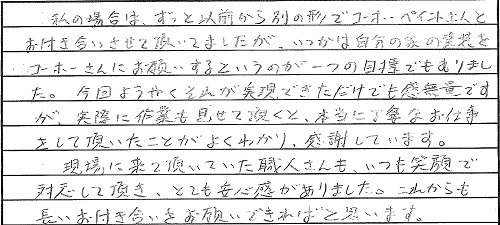 私の場合は、ずっと以前から別の形でコーホーペイントさんと
お付き合いさせて頂いてましたが、いつかは自分の家の塗装を
コーホーさんにお願いするというのが一つの目標でもありまし
た。今回ようやくそれが実現できただけでも感無量です
が、実際に作業も見せて頂くと、本当に丁寧なお仕事
をして頂いたことがよくわかり、感謝しています。
現場に来て頂いていた職人さんも、いつも笑顔で
対応して頂き、とても安心感がありました。これからも
長いお付き合いをお願いできればと思います。